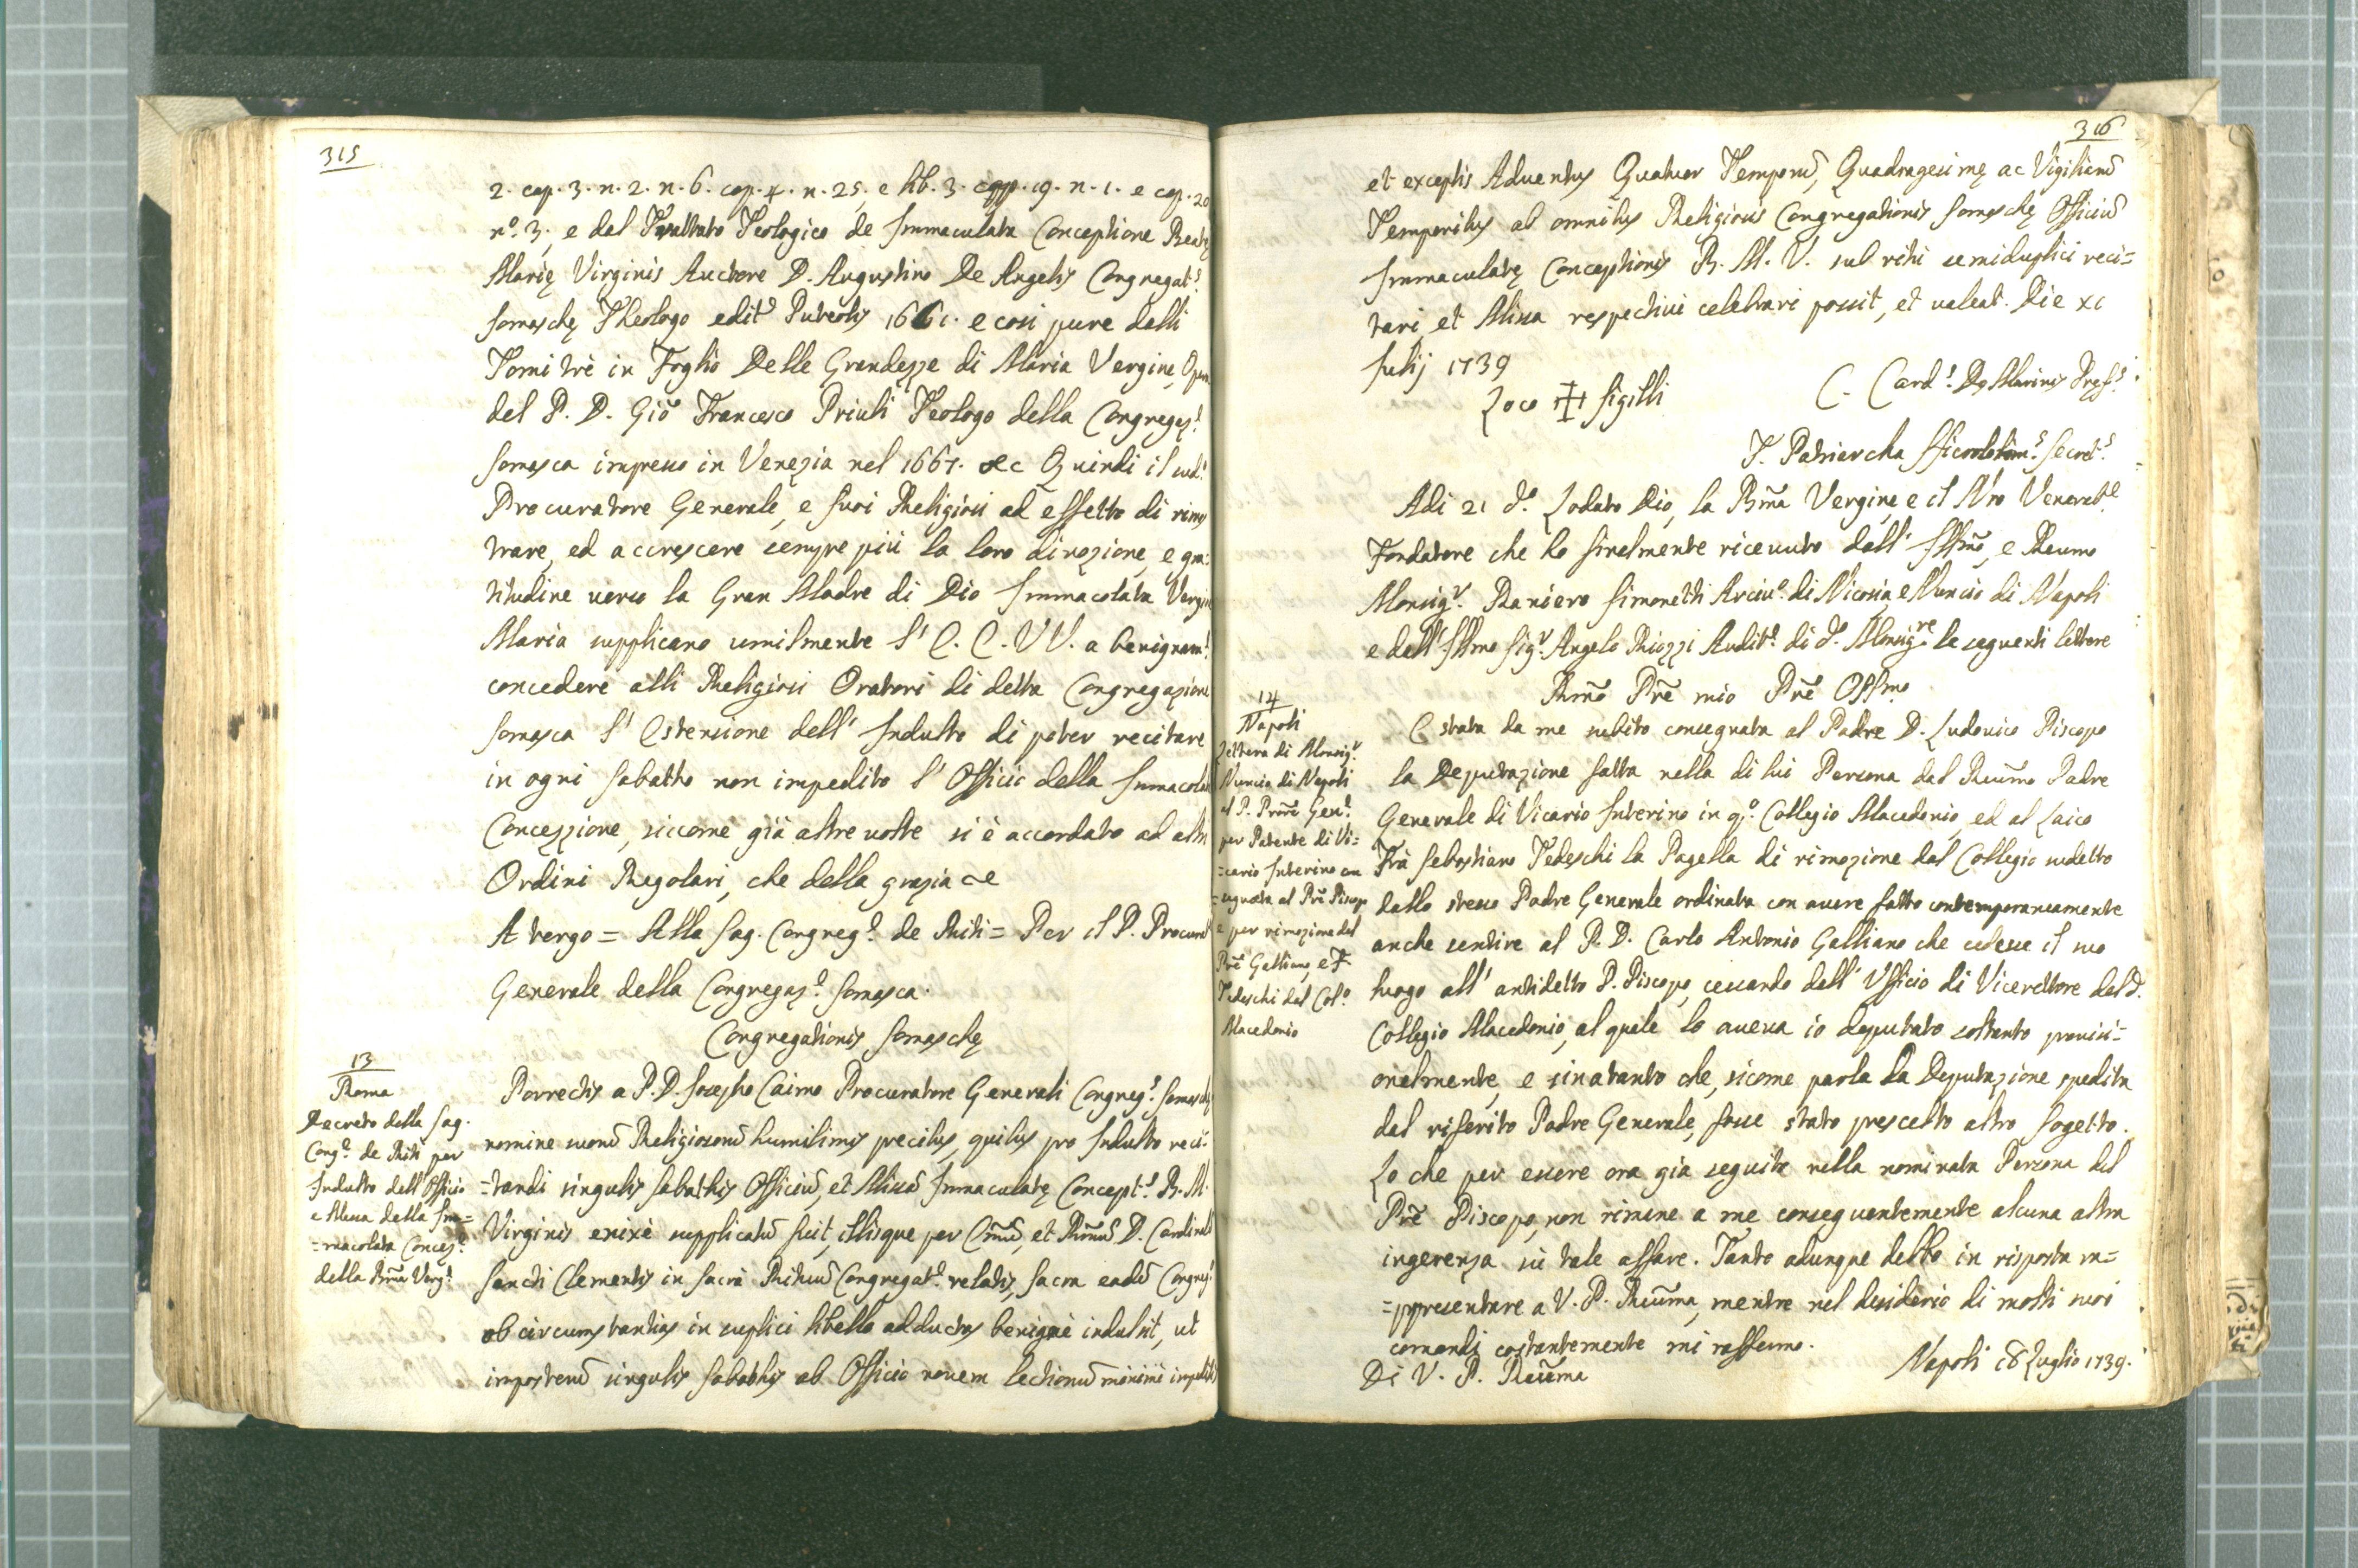 315
2. cap. 3. n. 2. n. 6. cap. 4. n. 25, e lib. 3. capp. 19. n. 1. e cap. 20
nº. 3; e dal Trattato Teologico de Immaculata Conceptione Beatę
Marię Virginis Auctore D. Augustino De Angelis Congregat.s
Somaschę Theologo edit.o Puteolis 1661. e così pure dalli
Tomi trè in Foglio Delle Grandezze di Maria Vergine, Opera
del P. D. Giõ Francesco Priuli Teologo della Congregaz.e
Somasca impresso in Venezia nel 1667. &c Quindi il sud.o
Procuratore Generale, e suoi Religiosi ad effetto di rimos
trare, ed accrescere sempre più la loro divozione, e gra:
titudine verso la Gran Madre di Dio Immacolata Vergine
Maria supplicano umilmente l' E. E. VV. a benignam.e
concedere alli Religiosi Oratori di detta Congregazione
Somasca l' Estensione dell' Indulto di poter recitare
in ogni Sabatto non impedito l' Officio della Immacolata
Concezzione, siccome già altre volte si è accordato ad altri
Ordini Regolari, che della grazia &c
A tergo = Alla Sag. Congreg.e de Riti = Per il P. Procurat
Generale della Congregaz.e Somasca.
Congregationis Somaschę
13
Roma
Decreto della Sag.
Cong.e de Riti per
Indulto dell'Officio
e Messa della Im=
=macolata Concez.e
della Bm̃a Verg.e
Porrectis a P. D. Josepho Caimo Procuratore Generali Congreg.s Somaschę
nomine suorũ Religiosorũ humilimis precibus, quibus pro Indulto reci:
=tandi singulis Sabathis Officiũ, et Missã Immaculatę Concept.s B. M.
Virginis enixè supplicatũ fuit, illisque per Em̃ũ, et Rm̃ũ D. Cardinalẽ
Sancti Clementis in Sacrã Rituũ Congregat.e relatis, Sacra eadẽ Congreg.
ob circumstantias in suplici libello adductas benignè indulsit, ut
imposterũ singulis Sabathis ab Officio novem Lectionũ minimè impeditis
316
et exceptis Adventus Quatuor Temporũ, Quadragesimę ac Vigiliarũ
Temporibus ab omnibus Religiosis Congregationis Somaschę Officiũ
Immaculatę Conceptionis B. M. V. sub ritu semiduplici reci=
tari, et Missa respective celebrari possit, et valeat. Die xi
Julij 1739
Loco ✠ Sigilli
C. Card.s De Marinis Pręf.s
T. Patriarcha Secret.s
Adi 21 d.o Lodato Dio, la Bm̃a Vergine, e il Nr̃o Venerab.e
Fondatore che hò finalmente ricevuto dall' Illm̃o, e Revmo
Monsig.r Raniero Simonetti Arciv.o di Nicosia, e Nuncio di Napoli
e dell' Illmo Sig.r Angelo Riozzi Audit.e di d.o Monsig.re le seguenti lettere
Rm̃o Pr̃e mio Pr̃e Ossmo
14
Napoli
Lettera di Monsig.r
Nuncio di Napoli
al P. Pror̃e Gen.e
per Patente di Vi=
=cario Interino con
=segnata al Pr̃e Piscop
e per rimozione del
Pr̃e Galliano, e F.
Tedeschi dal Col.o
Macedonio
E stata da me subito consegnata al Padre D. Ludovico Piscopo
la Deputazione fatta nella di lui Persona dal Revm̃o Padre
Generale di Vicario Interino in q.o Collegio Macedonio, ed al Laico
Frà Sebastiano Tedeschi la Pagella di rimozione dal Collegio sudetto
dallo stesso Padre Generale ordinata con avere fatto contemporaneamente
anche sentire al P. D. Carlo Antonio Galliano che cedesse il suo
luogo all' antidetto P. Piscopo, cessando dall' Ufficio di Vicerettore del d.o
Collegio Macedonio, al quale lo aveva io deputato soltanto provisi=
onalmente, e sinatanto che, sicome parla la Deputazione spedita
dal riferito Padre Generale, fosse stato prescelto altro Sogetto.
Lo che per essere ora già seguito nella nominata Persona del
Pr̃e Piscopo, non rimane a me conseguentemente alcuna altra
ingerenza sù tale affare. Tanto adunque debbo in risposta ra=
=ppresentare a V. P. Revm̃a, mentre nel desiderio di molti suoi
comandi costantemente mi raffermo.
Di V. P. Revm̃a
Napoli 18 Luglio 1739.